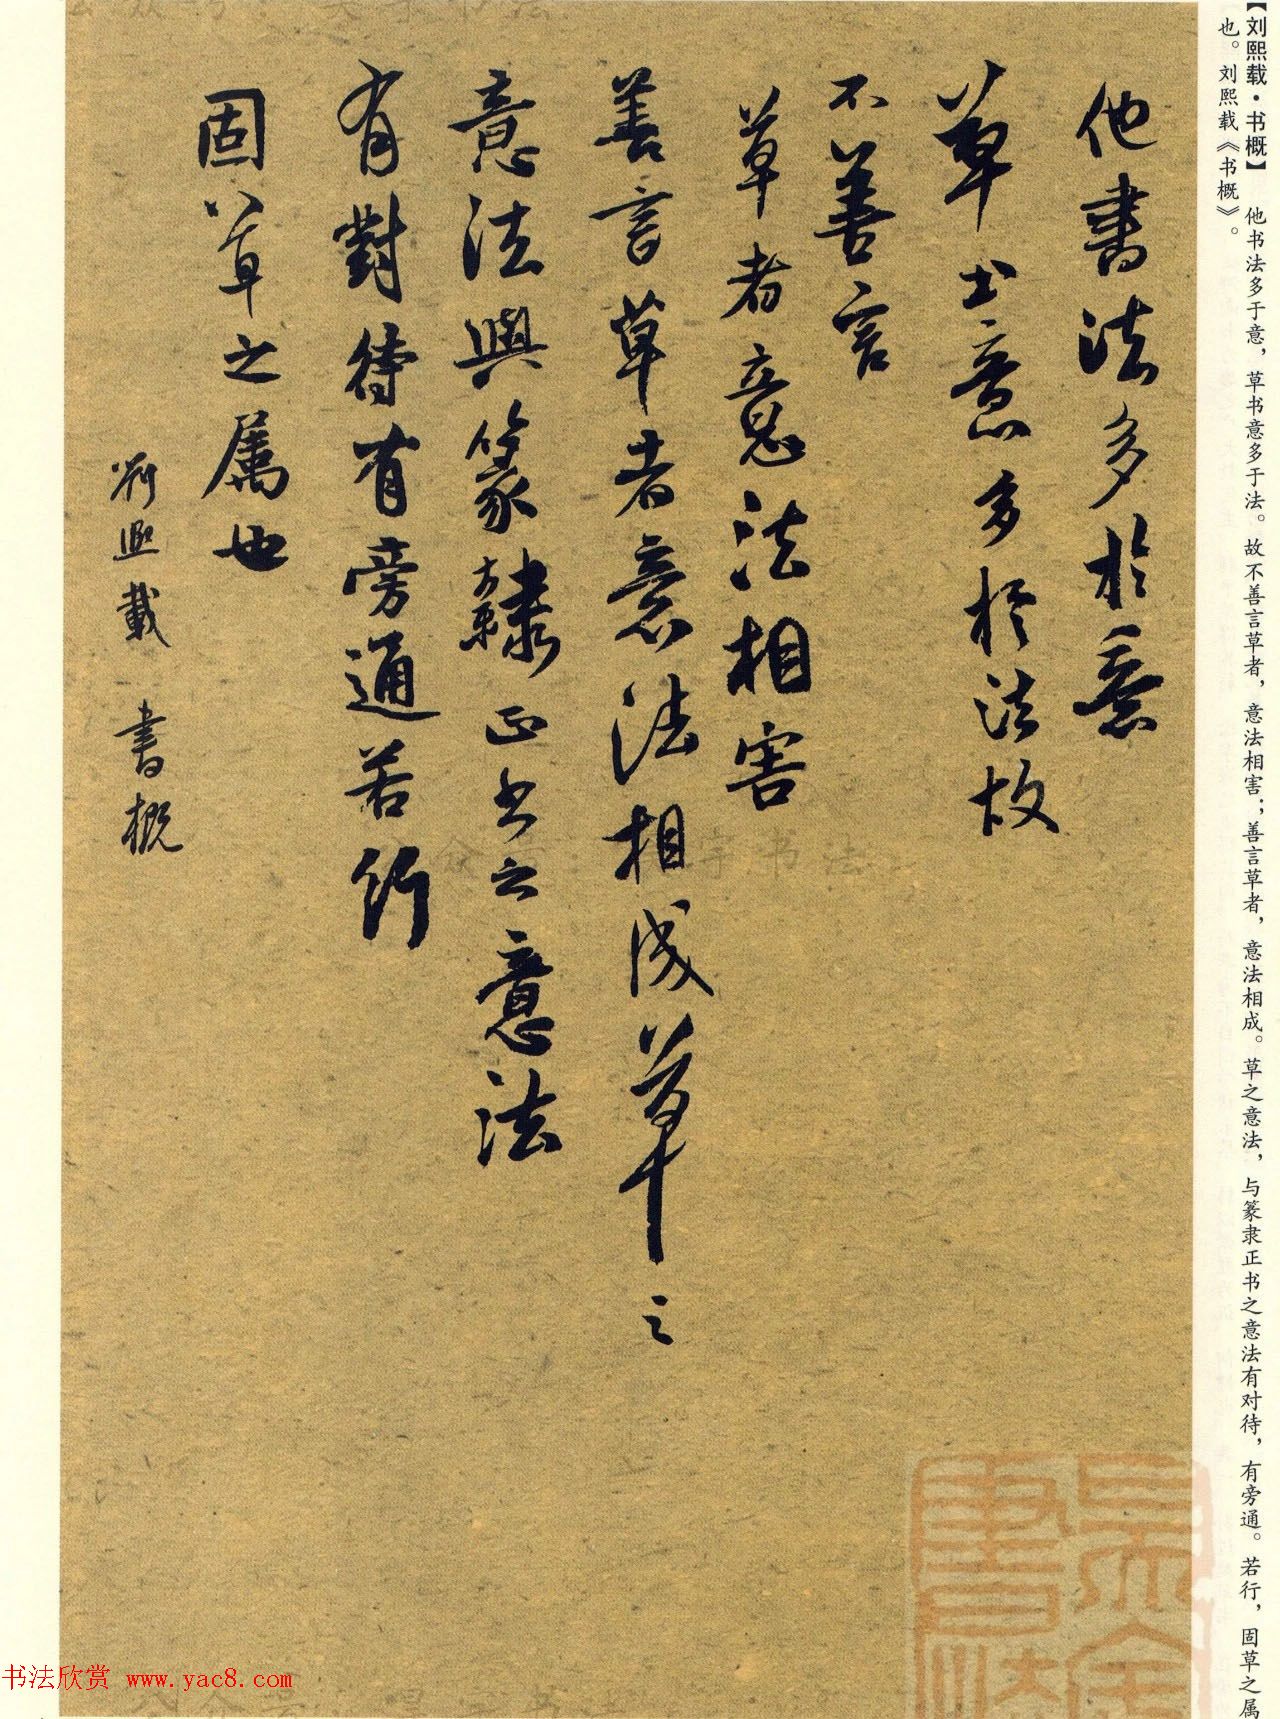 【刘熙载·书概】 他书法多于意，草书意多于法。故不善言草者，意法相害；善言草者，意法相成。草之意法，与篆隶正书之意法有对待，有旁通。若行，固草之属
也。刘熙载《书概》。
他書法多於意
草书意多於法故
不善言
草者意法相害
善言草者意法相成草之
意法與篆隸正书之意法
有對待有旁通若行
固草之属也
劉熙載 書概
书法欣赏 www.yac8.com